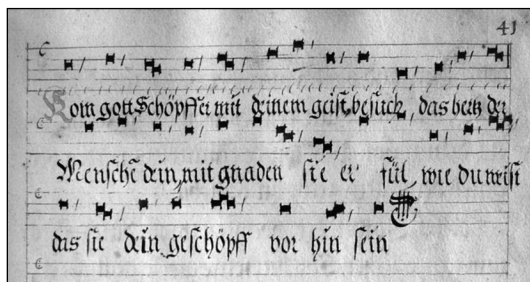 41
Kom gott Schöpffer mit deinem geist, besuch, das hertz der
Mensche dein, mit gnaden sie er fül, wie du weist
das sie dein geschöpff vor hin sein